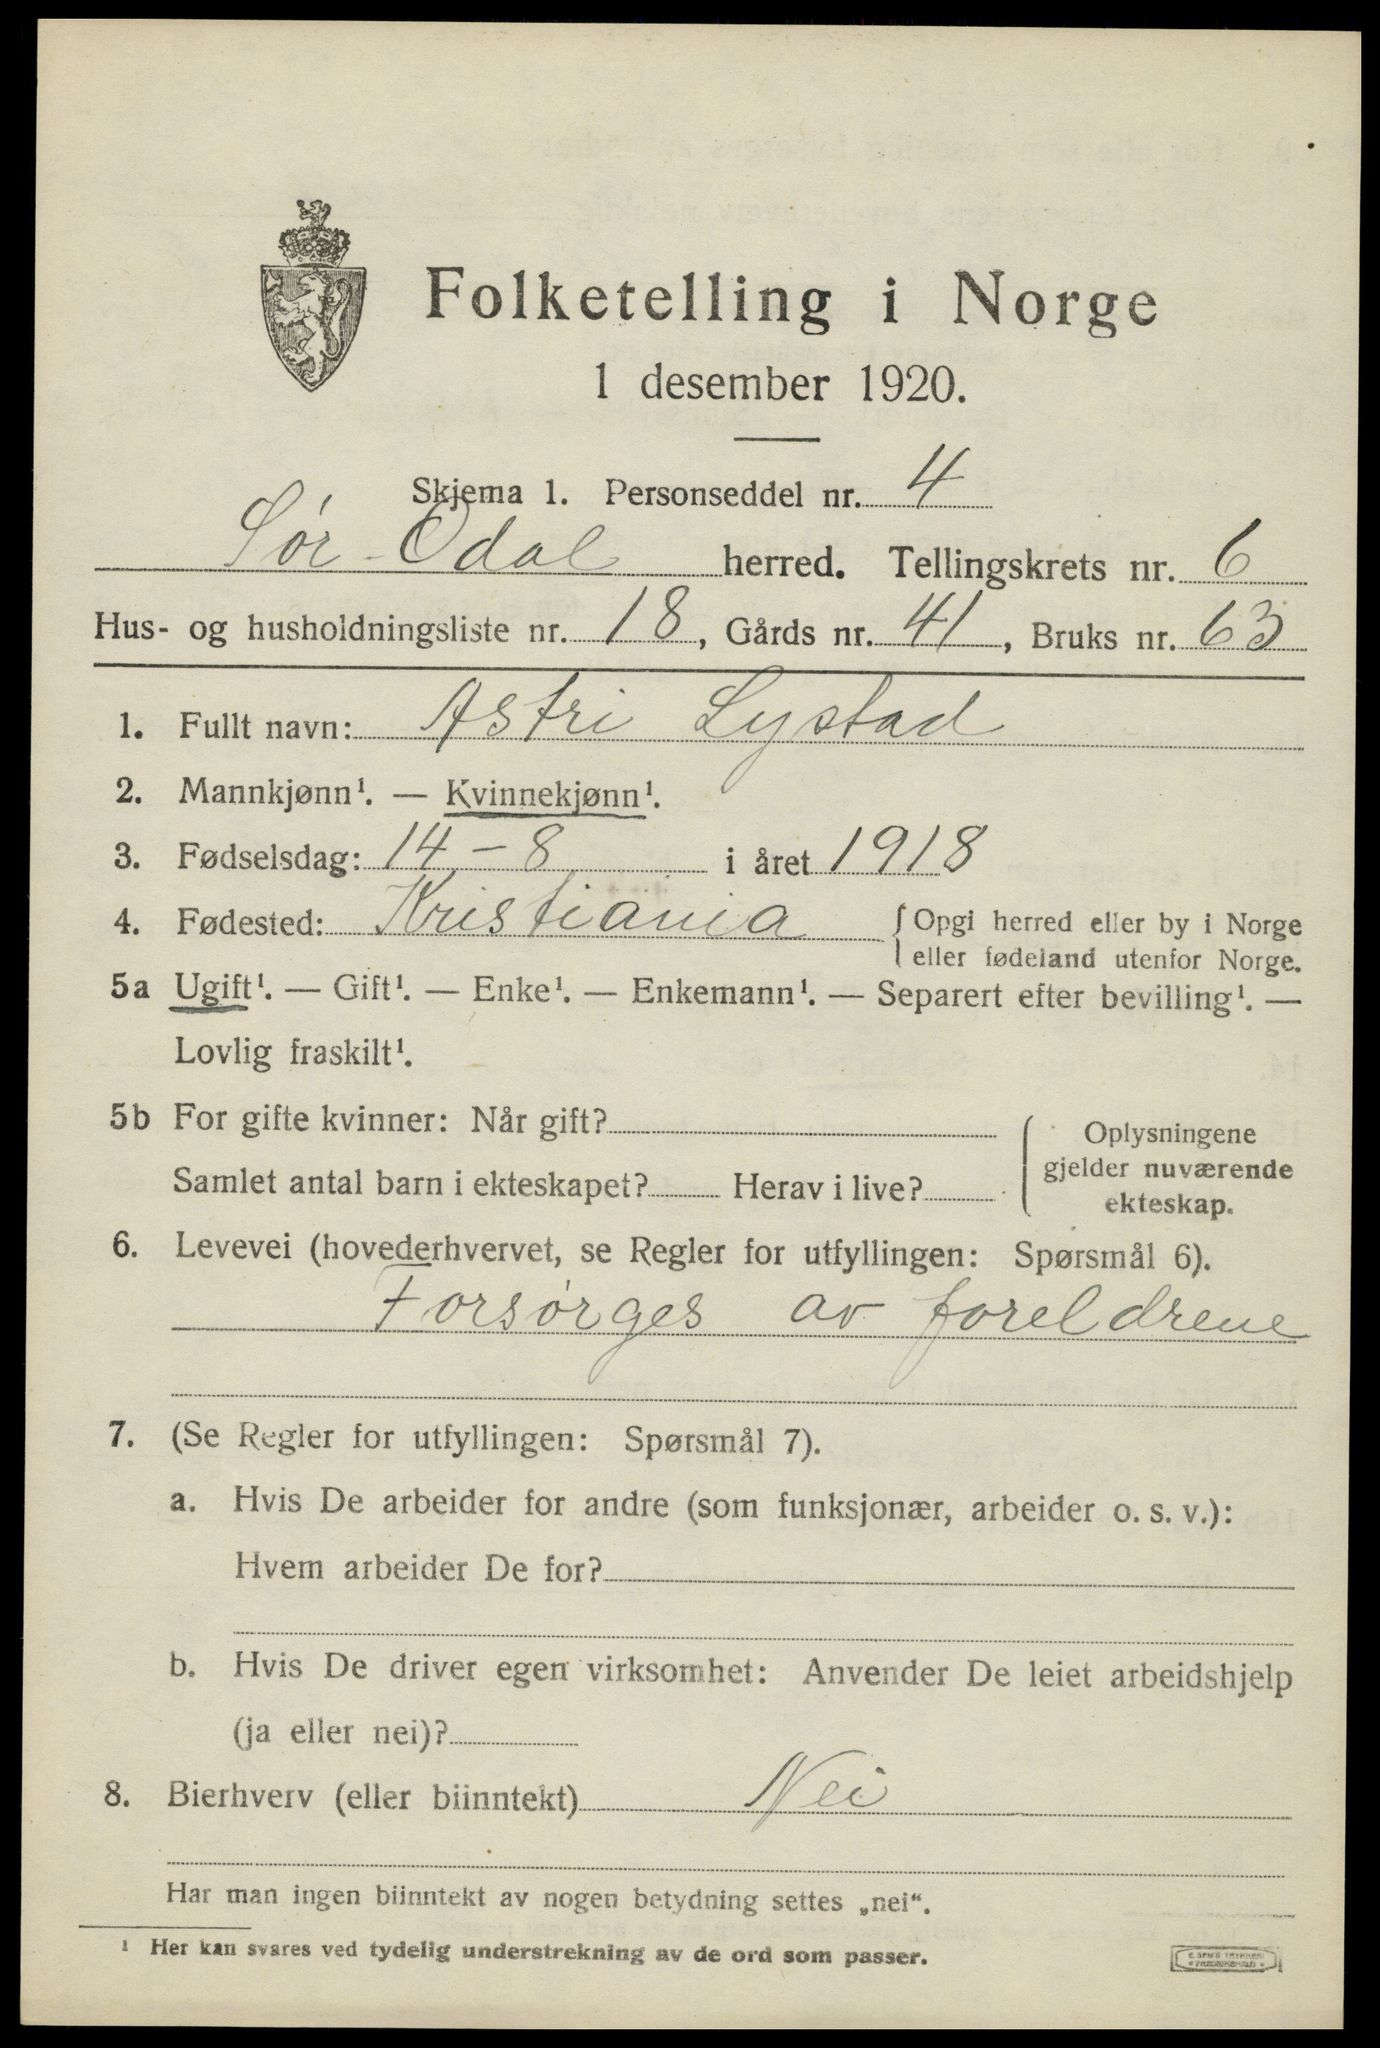 Folketelling i Norge
1 desember 1920.
Skjema 1. Personseddel nr. 4
Sør-Odal herred. Tellingskrets nr. 6
Hus- og husholdningsliste nr. 18, Gårds nr. 41, Bruks nr. 63
1. Fullt navn: Astri Lystad
2. Mannkjønn¹. — Kvinnekjønn¹.
3. Fødselsdag: 14-8 i året 1918
4. Fødested: Kristiania { Opgi herred eller by i Norge
eller fødeland utenfor Norge.
5a Ugift¹. — Gift¹. — Enke¹. — Enkemann¹. — Separert efter bevilling¹. —
Lovlig fraskilt¹.
5b For gifte kvinner: Når gift?
Samlet antal barn i ekteskapet? Herav i live?
{ Oplysningene
gjelder nuværende
ekteskap.
6. Levevei (hovederhvervet, se Regler for utfyllingen: Spørsmål 6).
Forsørges av foreldrene
7. (Se Regler for utfyllingen: Spørsmål 7).
a. Hvis De arbeider for andre (som funksjonær, arbeider o. s. v.):
Hvem arbeider De for?
b. Hvis De driver egen virksomhet: Anvender De leiet arbeidshjelp
(ja eller nei)?
8. Bierhverv (eller biinntekt) Nei
Har man ingen biinntekt av nogen betydning settes „nei“.
¹ Her kan svares ved tydelig understrekning av de ord som passer.